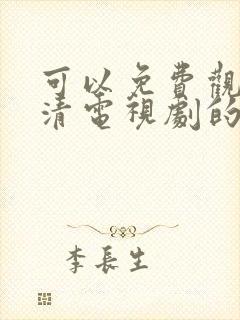 可以免費觀
清電視劇的
李長生